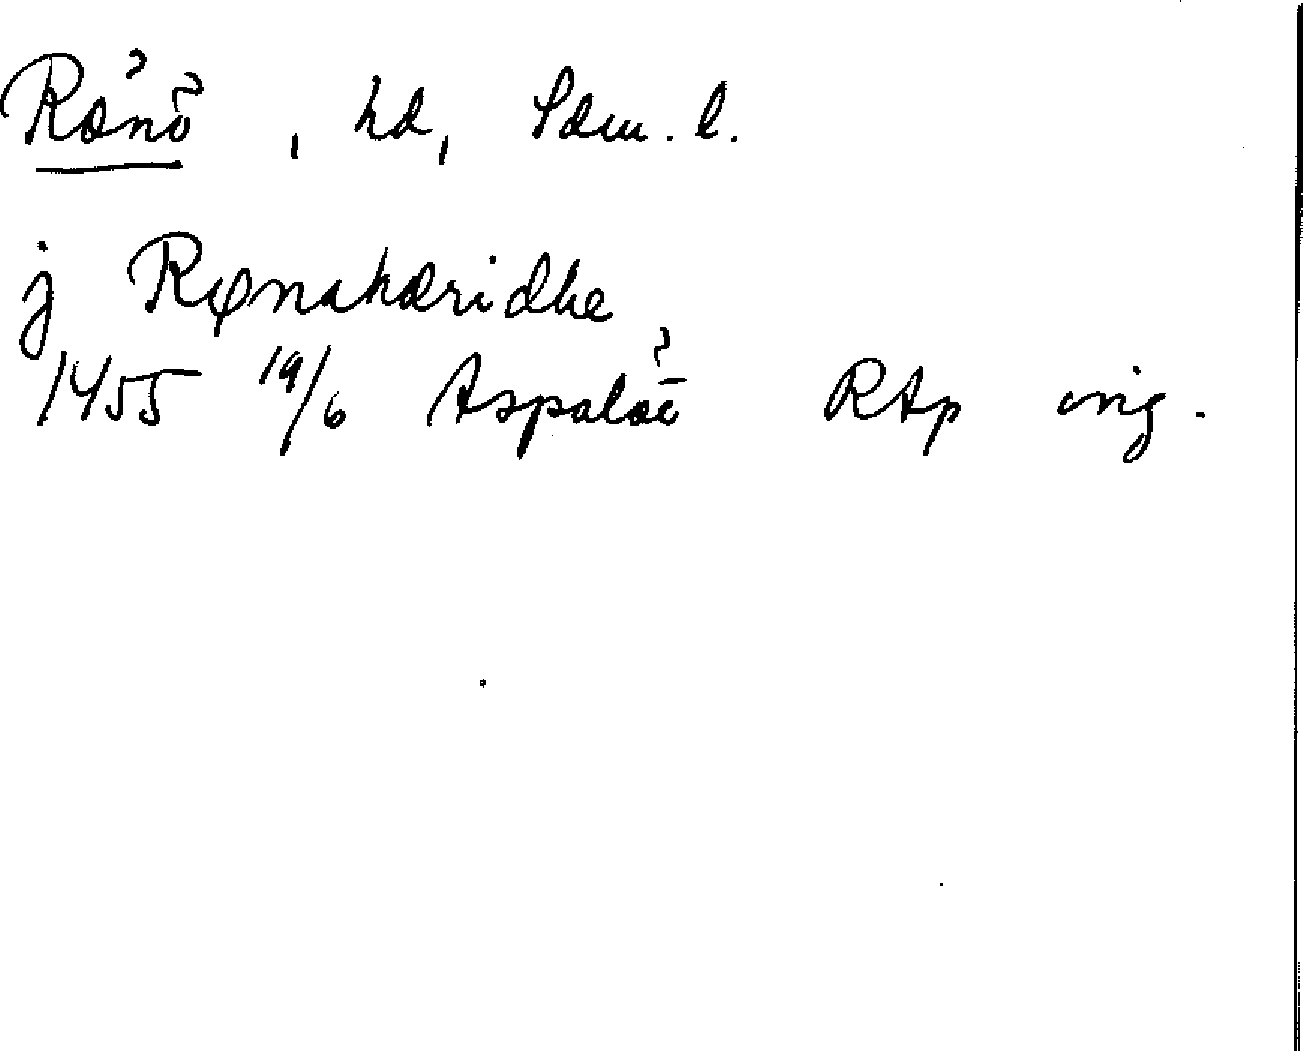 Rönö, hd, Söm. l.
j Rønahæridhe
1455 19/6 Aspaløø RAp orig.